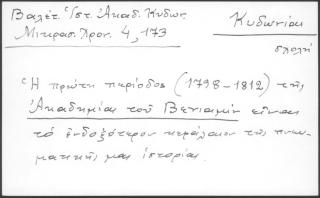 Βαλέτ. Ἱστ. Ἀκαδ. Κυδων.
Μικρασ. Χρον. 4, 173
Κυδωνίαι
σχολή
Ἡ πρώτη περίοδος (1798-1812) τῆς
Ἀκαδημίας τοῦ Βενιαμίν εἶναι
τό ἐνδοξότερον κεφάλαιον τῆς πνευ-
ματικῆς μας ἱστορίας.